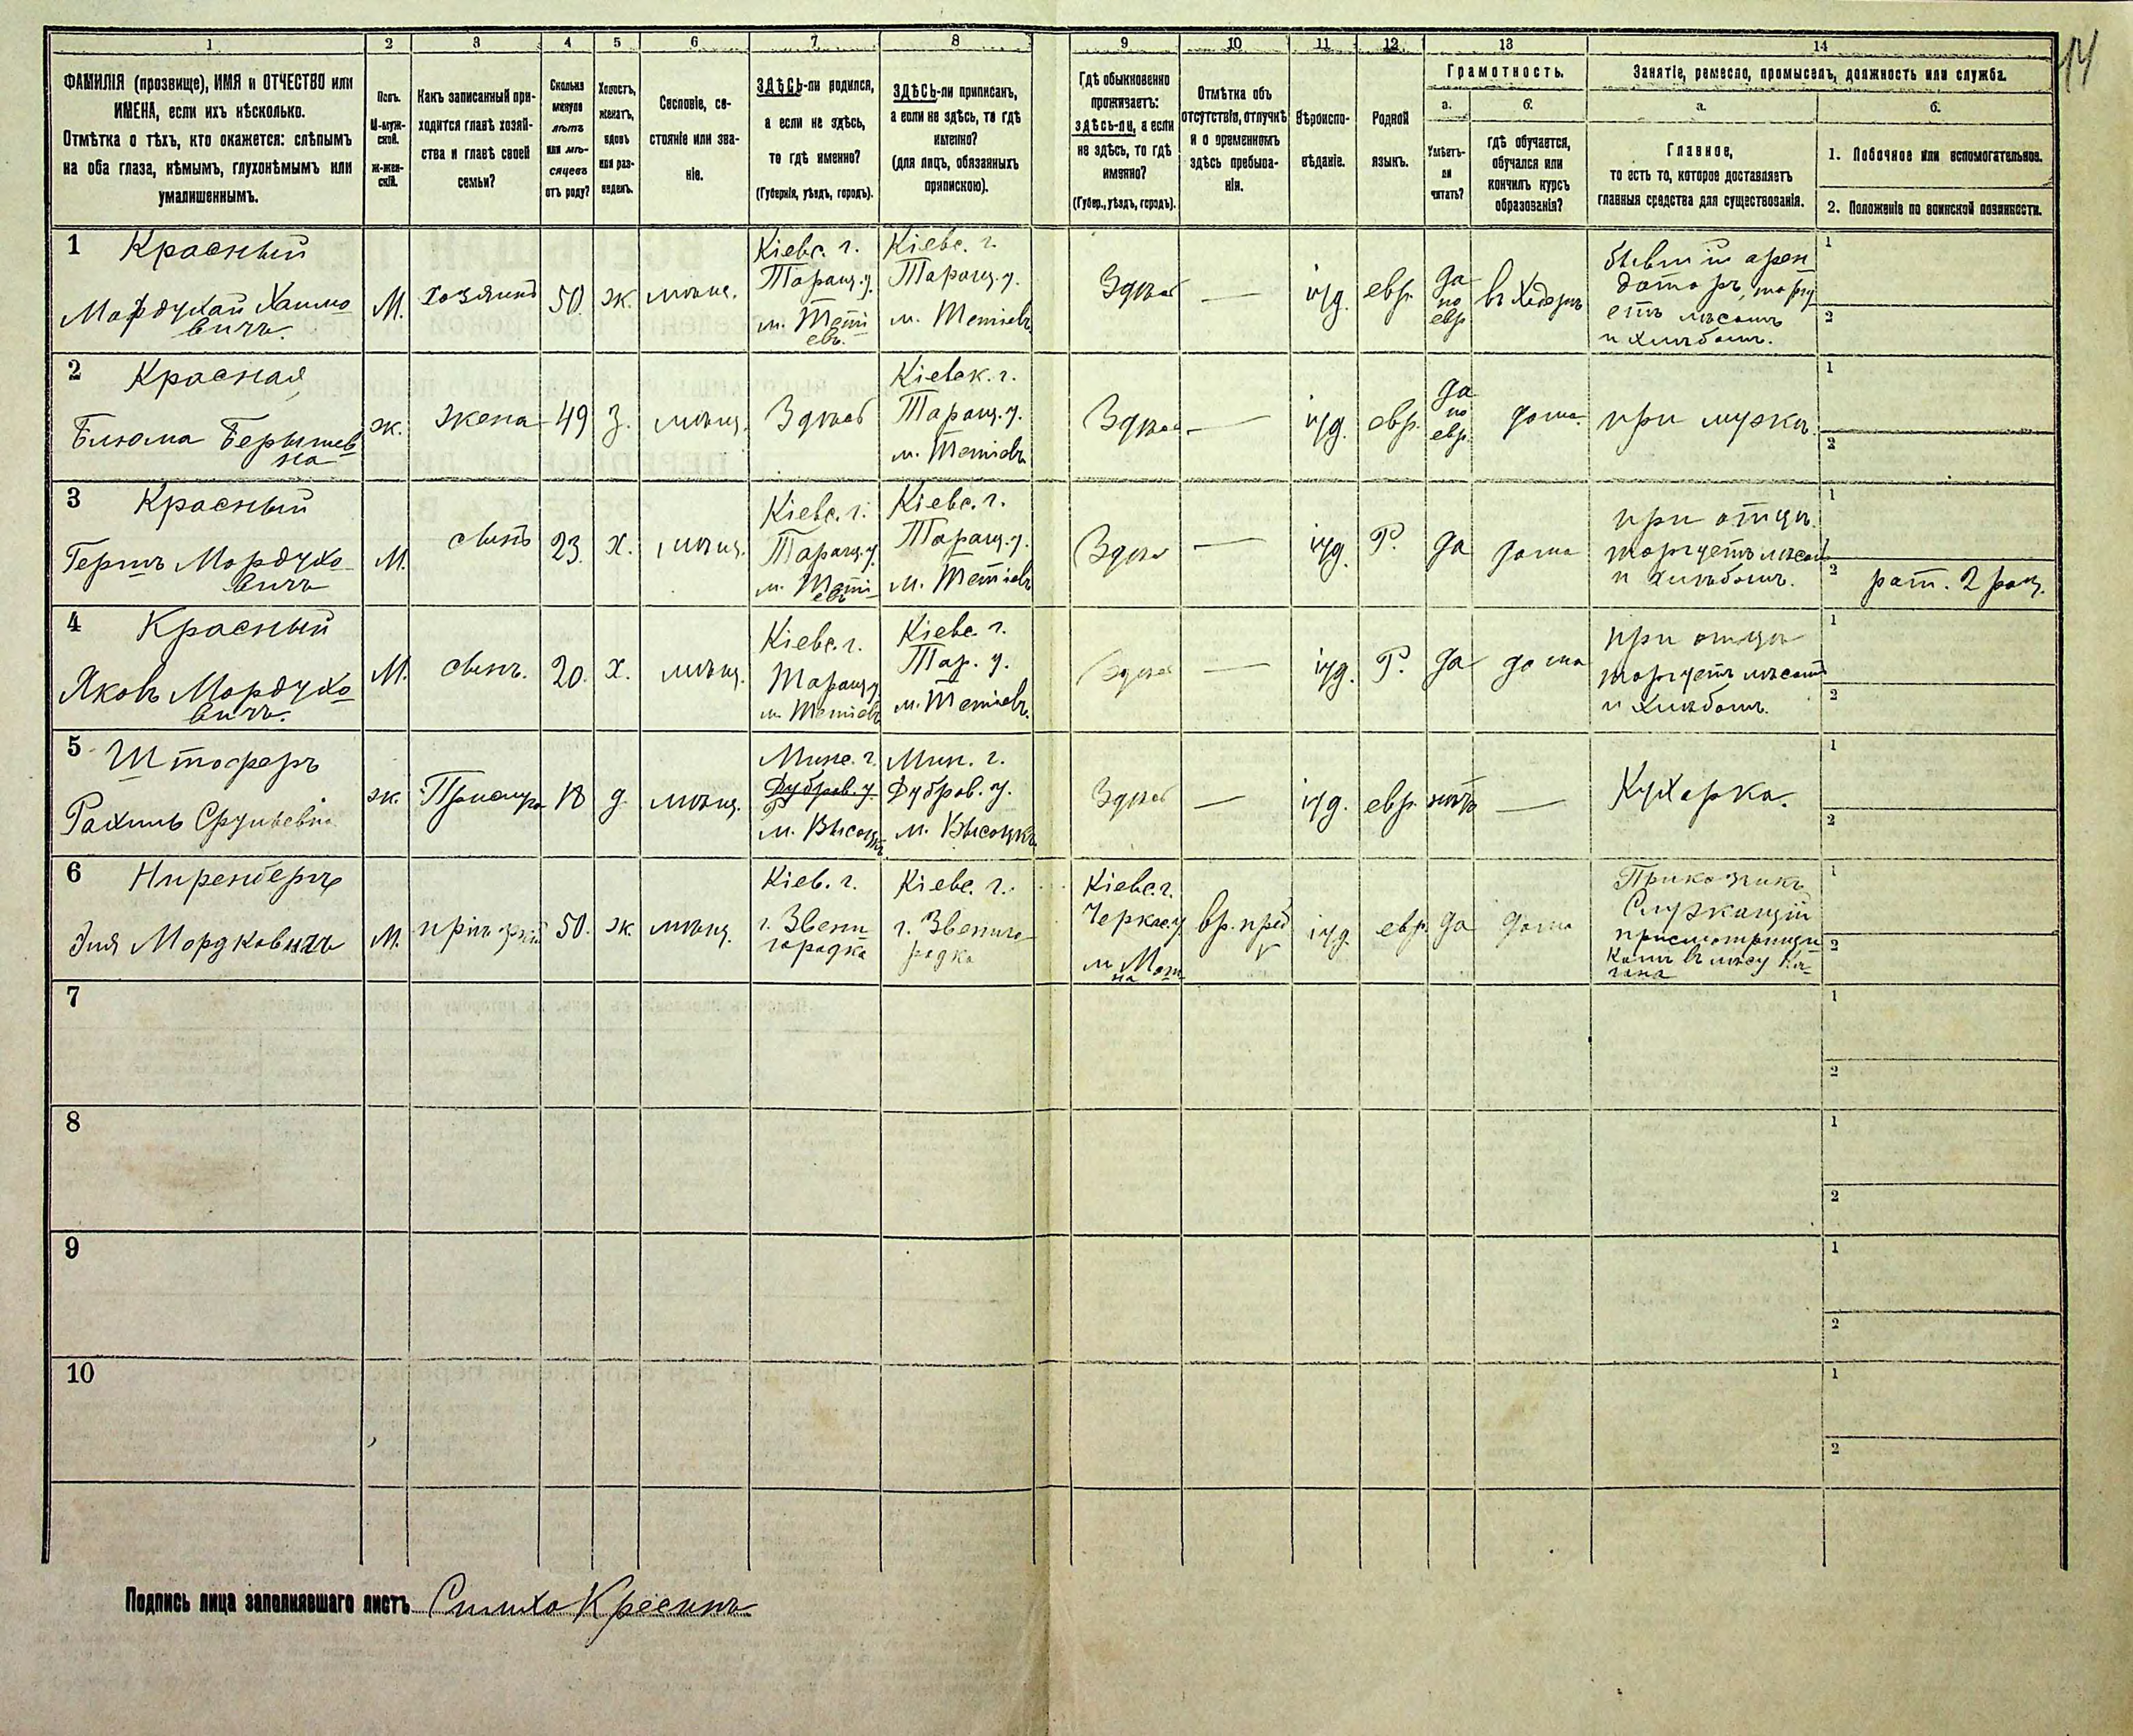 14
1 2 3 4 5 6 7 8 9 10 11 12 13 14
ФАМИЛІЯ (прозвище), ИМЯ и ОТЧЕСТВО или
ИМЕНА, если ихъ нѣсколько.
Отмѣтка о тѣхъ, кто окажется: слѣпымъ
на оба глаза, нѣмымъ, глухонѣмымъ или
умалишеннымъ.
Полъ.
М-муж-
ской.
Ж-жен-
скій.
Какъ записанный при-
ходится главѣ хозяй-
ства и главѣ своей
семьи?
Сколько
минуло
лѣтъ
или мѣ-
сяцевъ
отъ роду?
Холостъ,
женатъ,
вдовъ
или раз-
веденъ.
Сословіе, со-
стояніе или зва-
ніе.
ЗДѢСЬ-ли родился,
а если не здѣсь,
то гдѣ именно?
(Губернія, уѣздъ, городъ).
ЗДѢСЬ-ли приписанъ,
а если не здѣсь, то гдѣ
именно?
(для лицъ, обязанныхъ
припискою).
Гдѣ обыкновенно
проживаетъ:
здѣсь-ли, а если
не здѣсь, то гдѣ
именно?
(Губер., уѣздъ, городъ).
Отмѣтка объ
отсутствіи, отлучкѣ
и о временномъ
здѣсь пребыва-
ніи.
Вѣроиспо-
вѣданіе.
Родной
языкъ.
Грамотность.
а.
Умѣетъ-
ли
читать?
б.
гдѣ обучается,
обучался или
кончилъ курсъ
образованія?
Занятіе, ремесло, промыселъ, должность или служба.
а.
Главное,
то есть то, которое доставляетъ
главныя средства для существованія.
б.
1. Побочное или вспомогательное.
2. Положеніе по воинской повинности.
1 Красный
Мордухай Хаимо
вичъ.
М.
хозяинъ
50.
ж.
мѣщ.
Кіевс. г.
Таращ. у.
м. Теті
евъ.
Кіевс. г.
Таращ. у.
м. Тетіевъ
Здѣсь
—
іуд.
евр.
да
по
евр
въ Хедерѣ
бывшій арен
даторъ, торгу
етъ лѣсомъ
и хлѣбомъ.
1
2
2 Красная
Блюма Берышев
на
ж.
жена
49
з.
мѣщ.
Здѣсь
Кіевск. г.
Таращ. у.
м. Тетіевъ
Здѣсь
—
іуд.
евр.
да
по
евр.
дома.
при мужѣ
1
2
3 Красный
Гершъ Мордухо
вичъ
М.
сынъ
23.
х.
мѣщ.
Кіевс. г.
Таращ. у.
м. Теті
евъ
Кіевс. г.
Таращ. у.
м. Тетіевъ
Здѣсь
—
іуд.
Р.
да
дома
при отцѣ
торгуетъ лѣсомъ
и хлѣбомъ.
1
2 рат. 2 раз.
4 Красный
Яковъ Мордухо
вичъ.
М.
сынъ.
20.
х.
мѣщ.
Кіевс. г.
Таращ у.
м. Тетіевъ
Кіевс. г.
Тар. у.
м. Тетіевъ.
Здѣсь
—
іуд.
Р.
да
дома
при отцѣ
торгуетъ лѣсомъ
и хлѣбомъ.
1
2
5 Штоферъ
Рахиль Срулевна
ж.
Прислуга
18
д.
мѣщ.
Минс. г.
Дубров. у.
м. Высоцкъ
Мин. г.
Дубров. у.
м. Высоцкъ
Здѣсь
—
іуд.
евр.
нѣтъ
—
Кухарка.
1
2
6 Ниренбергъ
Эля Мордковичъ
М.
пріѣзжій
50.
ж.
мѣщ.
Кіев. г.
г. Звени
городка
Кіевс. г.
г. Звениго
родка
Кіевс. г.
Черкас. у
вр. преб
іуд.
евр.
да
дома
Приказчикъ
Служащій
1
2
7
1
2
8
1
2
9
1
2
10
1
2
Подпись лица заполнявшаго листъ